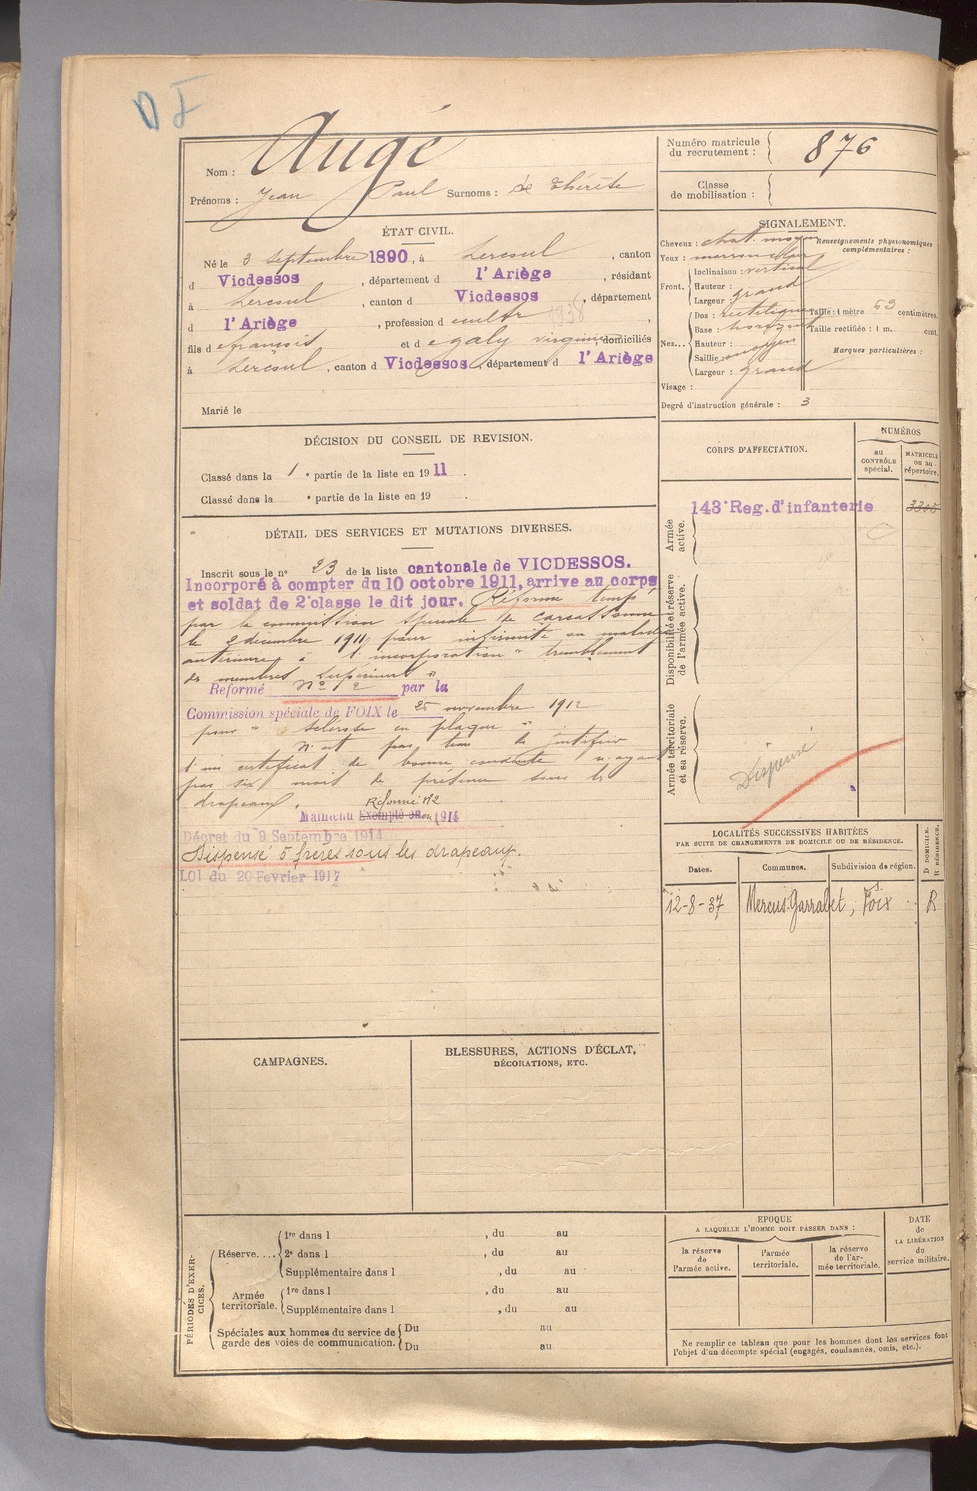 D F
Nom : Augé
Prénoms : Jean Paul Surnoms : de Thérète
ÉTAT CIVIL.
Né le 3 septembre 1890, à Lercoul, canton
d Vicdessos, département d l'Ariège, résidant
à Lercoul, canton d Vicdessos, département
d l'Ariège, profession d cultr 1938,
fils d e françois et d e galy virginie, domiciliés
à Lercoul, canton d Vicdessos, département d l'Ariège
Marié le
DÉCISION DU CONSEIL DE REVISION.
Classé dans la 1e partie de la liste en 1911.
Classé dans la e partie de la liste en 19 .
DÉTAIL DES SERVICES ET MUTATIONS DIVERSES.
Inscrit sous le n° 23 de la liste cantonale de VICDESSOS.
Incorporé à compter du 10 octobre 1911, arrive au corps
et soldat de 2e classe le dit jour. Réformé temp
par la commission spéciale de Carcassonne
le 2 décembre 1911 pour infirmité ou maladie
antérieure à l'incorporation " tremblement
des membres supérieurs "
Reformé n° 2 par la
Commission spéciale de FOIX le 25 novembre 1912
pour " sclérose en plaque "
N'est pas tenu de justifier
d'un certificat de bonne conduite n'ayant
pas six mois de présence sous les
drapeaux.
Réformé N°2
Maintenu Exempté en 1914
Décret du 9 Septembre 1914
Dispensé 5 frères sous les drapeaux.
LOI du 20 Fevrier 1917
CAMPAGNES.
BLESSURES, ACTIONS D'ÉCLAT,
DÉCORATIONS, ETC.
PÉRIODES D'EXERCICES.
Réserve....
1re dans l , du au
2e dans l , du au
Supplémentaire dans l , du au
Armée territoriale.
1re dans l , du au
Supplémentaire dans l , du au
Spéciales aux hommes du service de garde des voies de communication.
Du au
Du au
Numéro matricule du recrutement : 876
Classe de mobilisation :
SIGNALEMENT.
Cheveux : chat. moyen
Yeux : marron clair
Front. Inclinaison : vertical
Hauteur :
Largeur : grand
Nez... Dos : rectiligne
Base : horizont
Hauteur :
Saillie : moyen
Largeur : grand
Visage :
Renseignements physionomiques complémentaires :
Taille : 1 mètre 63 centimètres.
Taille rectifiée : 1 m. cent.
Marques particulières :
Degré d'instruction générale : 3
CORPS D'AFFECTATION.
NUMÉROS
au CONTRÔLE spécial.
MATRICULE ou au répertoire.
Armée active.
143e Reg. d'infanterie
Disponibilité et réserve de l'armée active.
Armée territoriale et sa réserve.
Dispensé
LOCALITÉS SUCCESSIVES HABITÉES
PAR SUITE DE CHANGEMENTS DE DOMICILE OU DE RÉSIDENCE.
Dates. Communes. Subdivision de région. D DOMICILE. R RÉSIDENCE.
12-8-37 Mercus-Garrabet, Foix R
EPOQUE
A LAQUELLE L'HOMME DOIT PASSER DANS :
la réserve de l'armée active.
l'armée territoriale.
la réserve de l'armée territoriale.
DATE de LA LIBÉRATION du service militaire.
Ne remplir ce tableau que pour les hommes dont les services font
l'objet d'un décompte spécial (engagés, condamnés, omis, etc.).